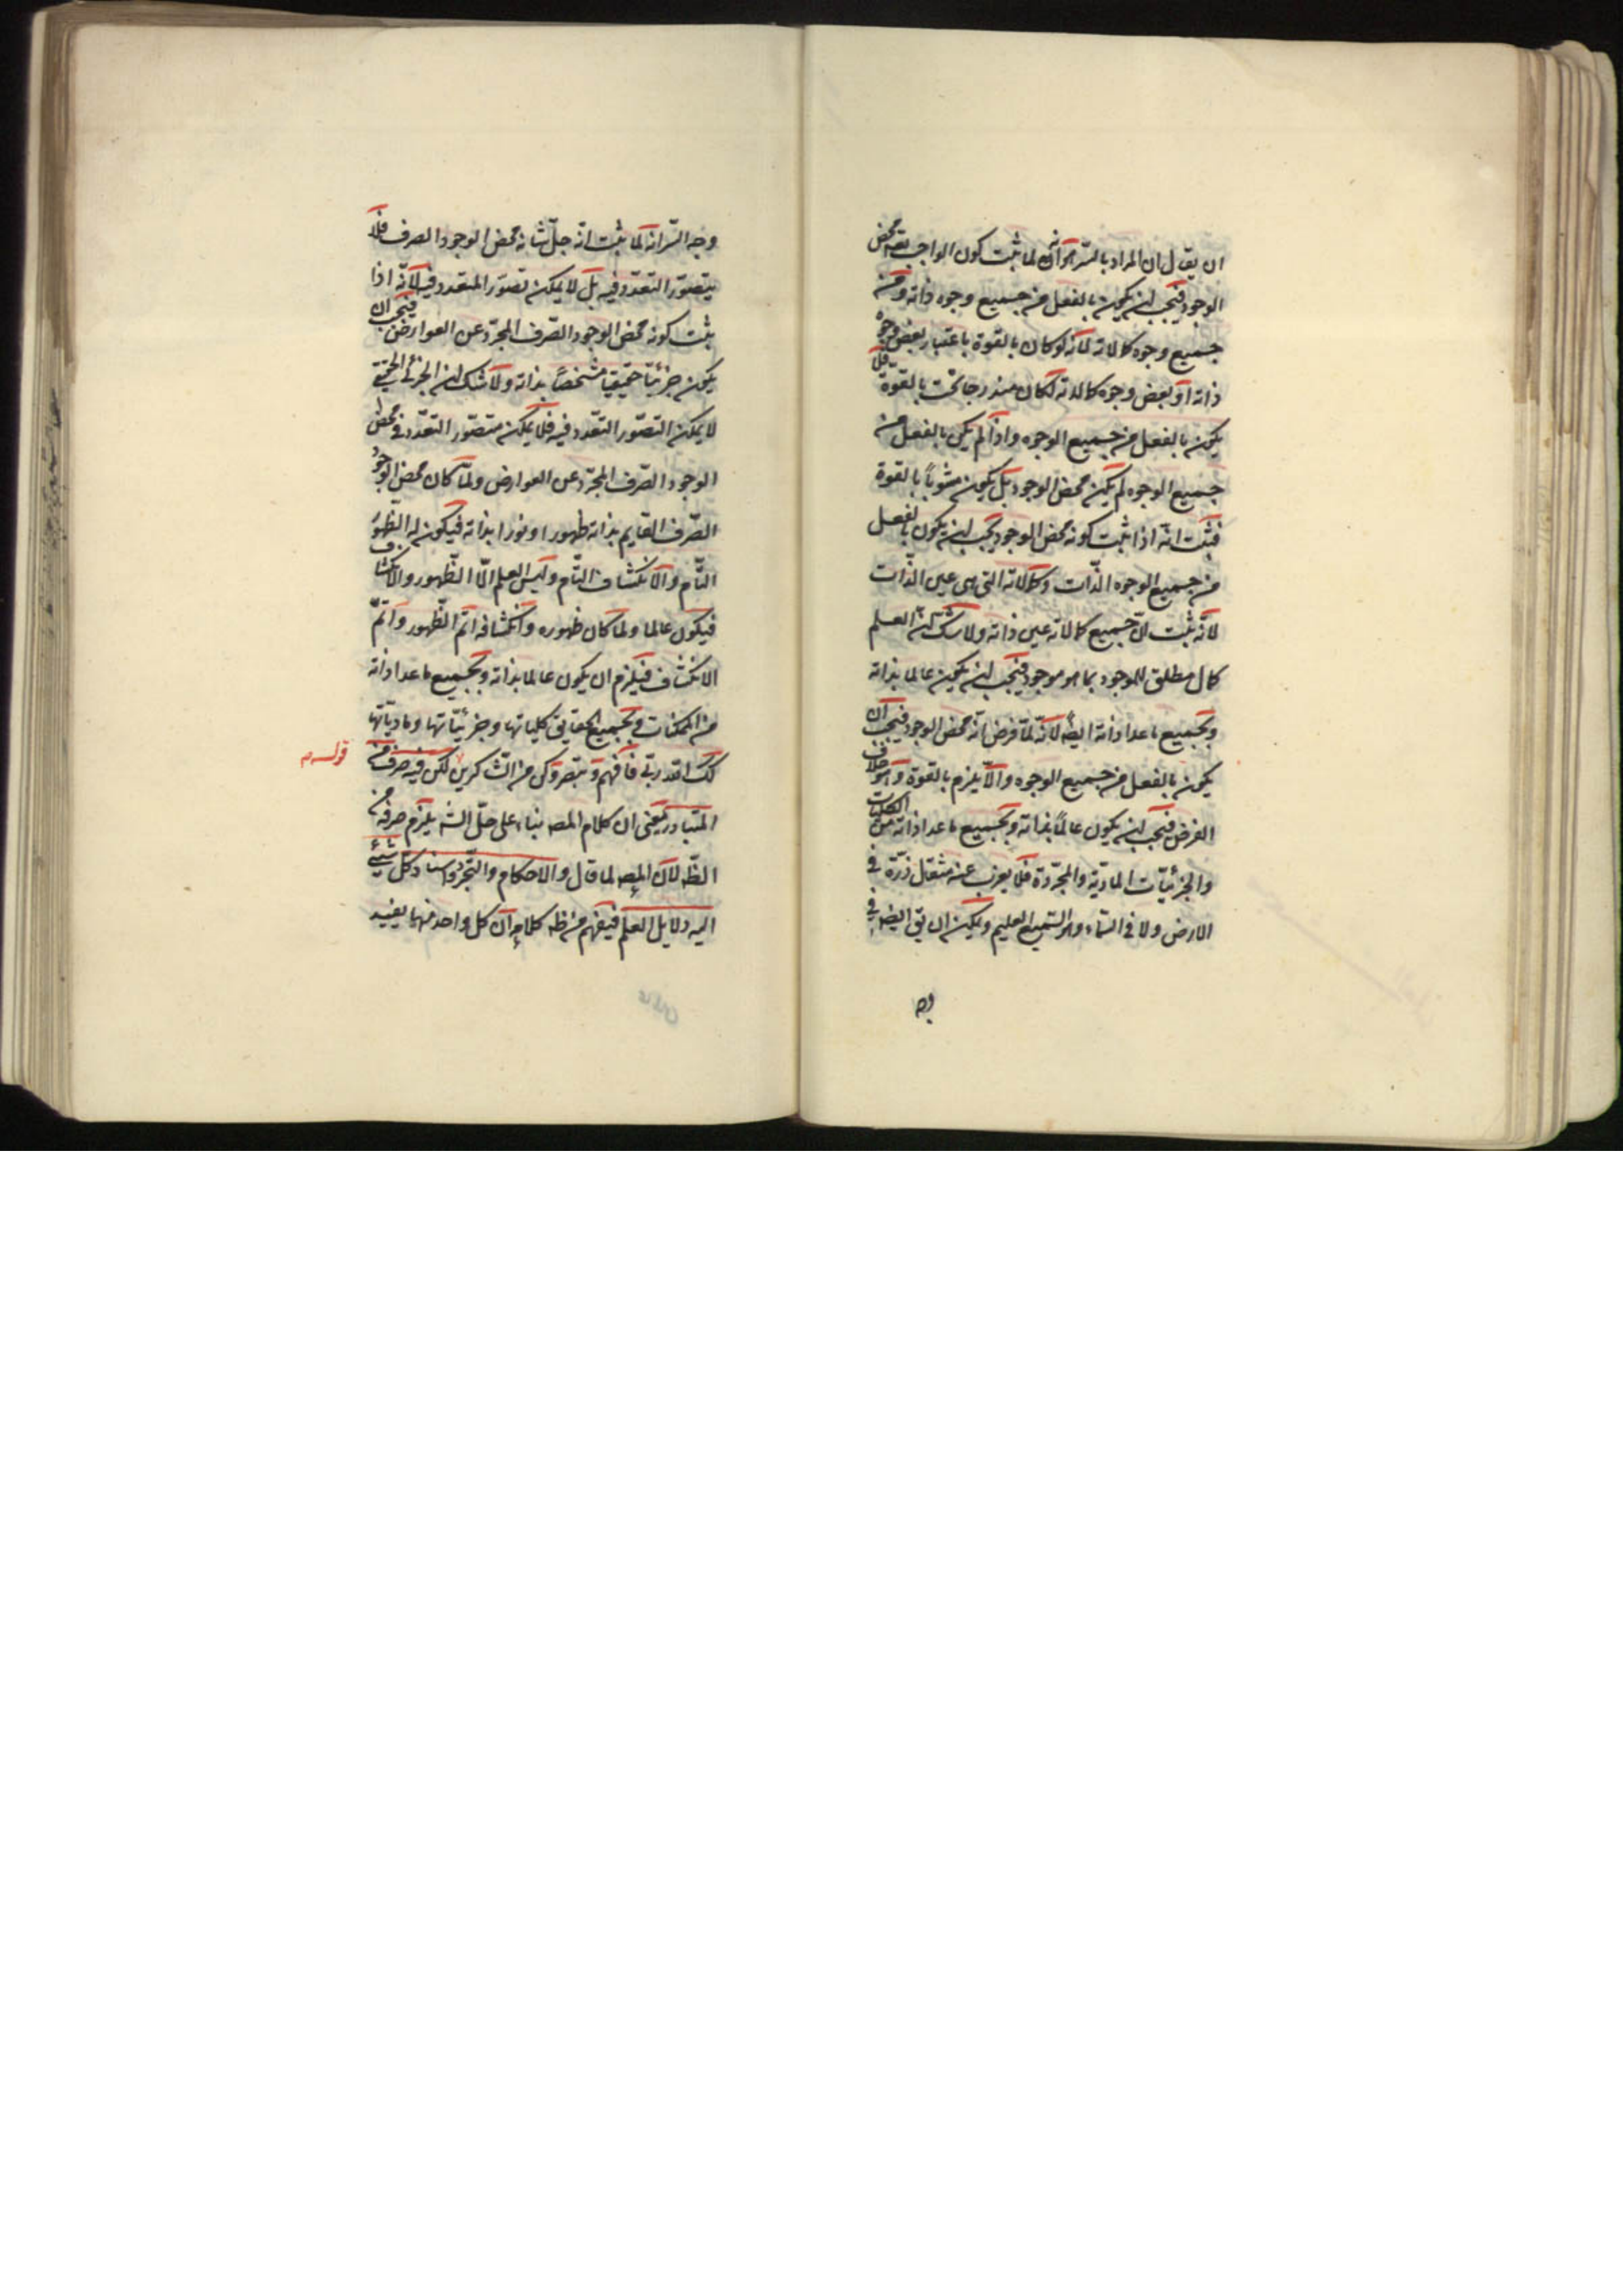 ان يقال ان المراد بالسّر هو انه لما ثبت كون الواجب تعه محض
الوجود فيجب ان يكون بالفعل من جميع وجوه ذاته ومن
جميع وجوه كمالاته لانه لو كان بالقوة باعتبار بعض وجوه
ذاته او بعض وجوه كمالاته لكان مندرجا تحت بالقوة فلا
يكون بالفعل من جميع الوجوه واذا لم يكن بالفعل من
جميع الوجوه لم يكن محض الوجود بل يكون مشوباً بالقوة
فثبت انّه اذا ثبت كونه محض الوجود يجب ان يكون بالفعل
من جميع الوجوه الذّات وكمالاته التي هي عين الذّات
لانّه ثبت انّ جميع كمالاته عين ذاته ولا شك ان العلم
كمال مطلق للموجود بما هو موجود فيجب ان يكون عالما بذاته
وبجميع ما عدا ذاته ايضاً لانّه لمّا فرض انّه محض الوجود فيجب ان
يكون بالفعل من جميع الوجوه والّا يلزم بالقوة وهو خلاف
الفرض فيجب ان يكون عالماً بذاته وبجميع ما عدا ذاته من الكليات
والجزئيّات الماديّة والمجرّدة فلا يعزب عنه مثقال ذرّة في
الارض ولا في السّماء وهو السّميع العليم ويمكن ان يق ايضه في
وجه
وجه السّر انه لمّا ثبت انّه جلّ شانه محض الوجود الصرف فلا
يتصوّر التعدّد فيه بل لا يمكن تصوّر المتعدد فيه لانّه اذا
ثبت كونه محض الوجود الصّرف المجرّد عن العوارض فيجب ان
يكون جزئيّا حقيقيا مشخصاً بذاته ولا شك ان الجزئي الحقيقي
لا يمكن التصوّر التعّدد فيه فلا يمكن متصوّر التعّدد في محض
الوجود الصّرف المجرّد عن العوارض ولمّا كان محض الوجود
الصّرف القايم بذاته ظهورا ونورا بذاته فيكون له الظّهور
التّام والانكشاف التّام وليس العلم الّا الظّهور والانكشاف
فيكون عالما ولما كان ظهوره وانكشافه اتم الظّهور واتمّ
الانكشاف فيلزم ان يكون عالما بذاته وبجميع ما عدا ذاته
من الممكنات وبجميع الحقايق كلياتها وجزئيّاتها وماديّاتها
فافهم وتبصر وكن من الشاكرين لكن فيه صرف من
قوله م
المتبادر يعنى ان كلام المصه بناء على حلّ الشه يلزم صرفه من
الظّه لان المصه لما قال والاحكام والتّجرّد واسناد كلّ شيئ
اليه دلايل العلم فيفهم من ظه كلامه ان كل واحد منها يفيد